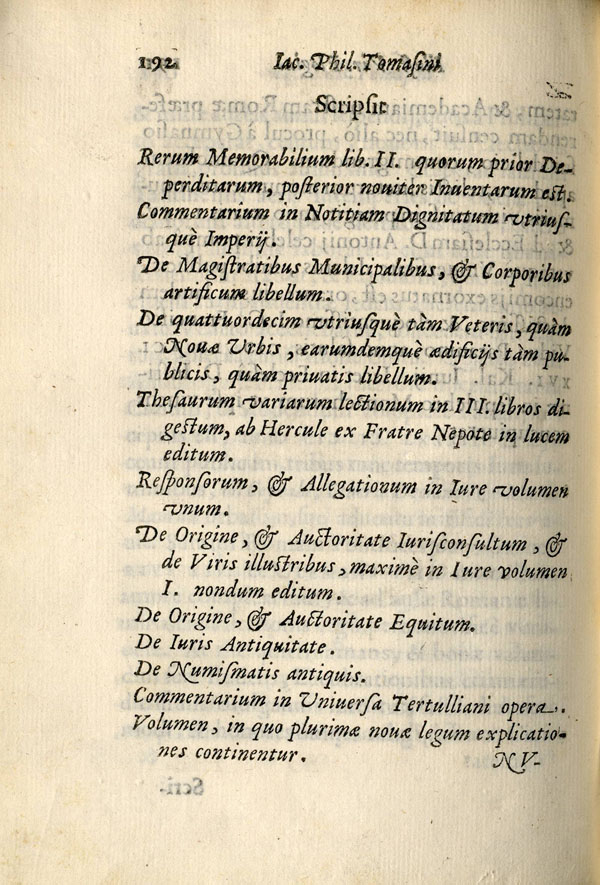 192 Iac. Phil. Tomasini
Scripsit
Rerum Memorabilium lib. II. quorum prior De-
perditarum, poſterior nouitèr Inuentarum est.
Commentarium in Notitiam Dignitatum vtriuſ-
què Imperij.
De Magiſtratibus Municipalibus, & Corporibus
artificum libellum.
De quattuordecim vtriuſquè tàm Veteris, quàm
Nouæ Vrbis, earumdemquè ædificijs tàm pu-
blicis, quàm priuatis libellum.
Theſaurum variarum lectionum in III. libros di-
geſtum, ab Hercule ex Fratre Nepote in lucem
editum.
Reſponſorum, & Allegationum in Iure volumen
vnum.
De Origine, & Auctoritate Iuriſconſultum, &
de Viris illuſtribus, maximè in Iure volumen
I. nondum editum.
De Origine, & Auctoritate Equitum.
De Iuris Antiquitate.
De Numiſmatis antiquis.
Commentarium in Vniuerſa Tertulliani opera.
Volumen, in quo plurimæ nouæ legum explicatio-
nes continentur.
NV-